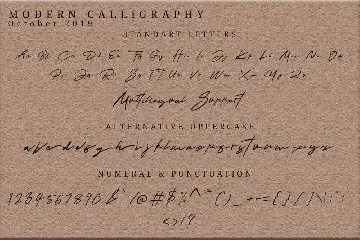 MODERN CALLIGRAPHY
October 2019
STANDART LETTERS
Aa Bb Cc Dd Ee Ff Gg Hh Ii Jj Kk Ll Mm Nn Oo
Pp Qq Rr Ss Tt Uu Vv Ww Xx Yy Zz
Multilingual Support
ALTERNATIVE UPPERCASE
a b c d e f g h i j k l m n o p q r s t u v w x y z
NUMERAL & PUNCTUATION
1234567890